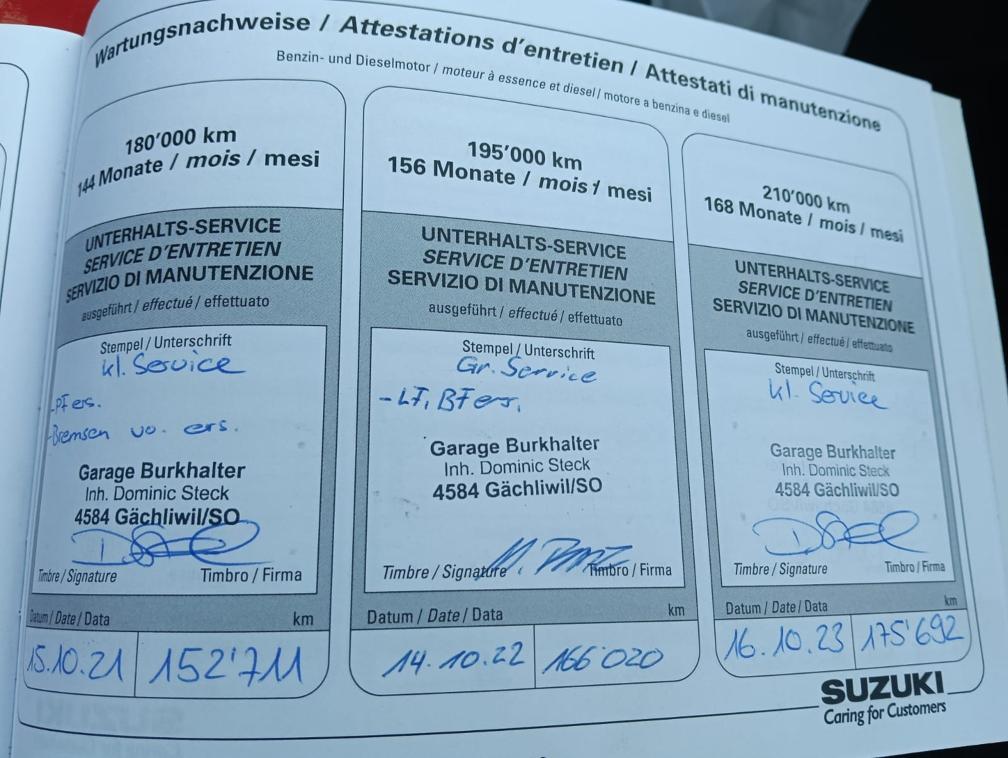 Wartungsnachweise / Attestations d'entretien / Attestati di manutenzione
Benzin- und Dieselmotor / moteur à essence et diesel / motore a benzina e diesel
180'000 km
144 Monate / mois / mesi
UNTERHALTS-SERVICE
SERVICE D'ENTRETIEN
SERVIZIO DI MANUTENZIONE
ausgeführt / effectué / effettuato
Stempel / Unterschrift
kl. Service
-PF ers.
-Bremsen vo. ers.
Garage Burkhalter
Inh. Dominic Steck
4584 Gächliwil/SO
Timbre / Signature Timbro / Firma
Datum / Date / Data km
15.10.21 152'711
195'000 km
156 Monate / mois / mesi
UNTERHALTS-SERVICE
SERVICE D'ENTRETIEN
SERVIZIO DI MANUTENZIONE
ausgeführt / effectué / effettuato
Stempel / Unterschrift
Gr. Service
- LF, BF ers.
Garage Burkhalter
Inh. Dominic Steck
4584 Gächliwil/SO
Timbre / Signature Timbro / Firma
Datum / Date / Data km
14.10.22 166'020
210'000 km
168 Monate / mois / mesi
UNTERHALTS-SERVICE
SERVICE D'ENTRETIEN
SERVIZIO DI MANUTENZIONE
ausgeführt / effectué / effettuato
Stempel / Unterschrift
kl. Service
Garage Burkhalter
Inh. Dominic Steck
4584 Gächliwil/SO
Timbre / Signature Timbro / Firma
Datum / Date / Data km
16.10.23 175'692
SUZUKI
Caring for Customers